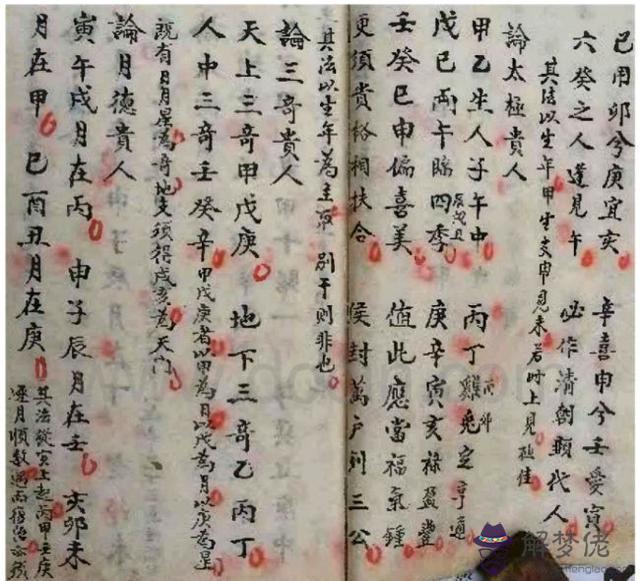 己用卯兮庚宜亥 辛喜申兮壬愛寅
六癸之人逢見午 必作清朝顯代人
其法以生年甲生支申見未若時上見極佳
論太極貴人
甲乙生人子午中 丙丁雞兔定亨通 丙卯
戊己兩午臨四季 辰戌丑 庚辛寅亥祿盈豐
壬癸巳申偏喜美 值此應當福氣鍾
更須貴格相扶合 候封萬戶列三公
其法以生年為主 別干則非也
論三奇貴人
天上三奇甲戊庚 地下三奇乙丙丁
人中三奇壬癸辛 甲戊庚者以甲為日以戊為月以庚為星
既有日月星為奇地支須得戌亥為天門
論月德貴人
寅午戌月在丙 申子辰月在壬 亥卯未
月在甲 巳酉丑月在庚 其法從寅上起丙甲壬庚
逐月順數過而復
解梦佬
jiemenglao.com